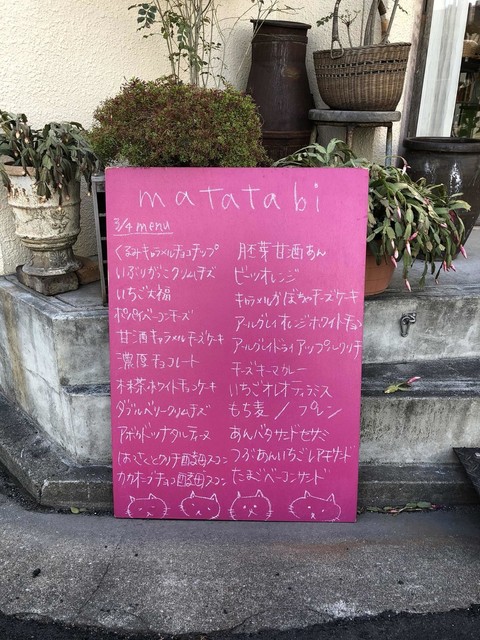 matatabi
3/4 menu
くるみキャラメルチョコチップ
いぶりがっこクリームチーズ
いちご大福
ポパイベーコンチーズ
甘酒キャラメルチーズケーキ
濃厚チョコレート
抹茶ホワイトチョコケーキ
ダブルベリークリームチーズ
アボカドッナタルティーヌ
はっさくとクリチ酵母スコーン
カカオニブチョコ酵母スコーン
胚芽甘酒あん
ビーツオレンジ
キャラメルかぼちゃチーズケーキ
アールグレイオレンジホワイトチョコ
アールグレイドライアップルクリチ
チーズキーマカレー
いちごオレオティラミス
もち麦 / プレーン
あんバタサンドセサミ
つぶあんいちごレアキサンド
たまごベーコンサンド